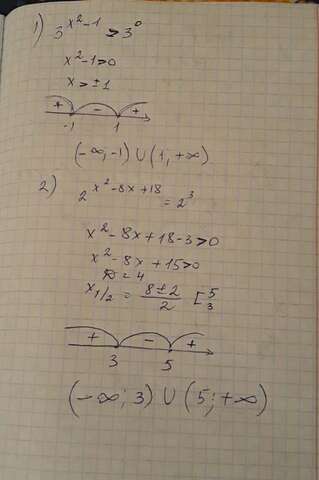 1) 3^{x²-1} ≥ 3^0
x²-1>0
x > ±1
+ - +
-1 1
(-∞;-1) ∪ (1;+∞)
2) 2^{x²-8x+18} = 2^3
x²-8x+18-3>0
x²-8x+15>0
D=4
x_{1/2} = \frac{8±2}{2} [5 3
+ - +
3 5
(-∞;3) ∪ (5;+∞)